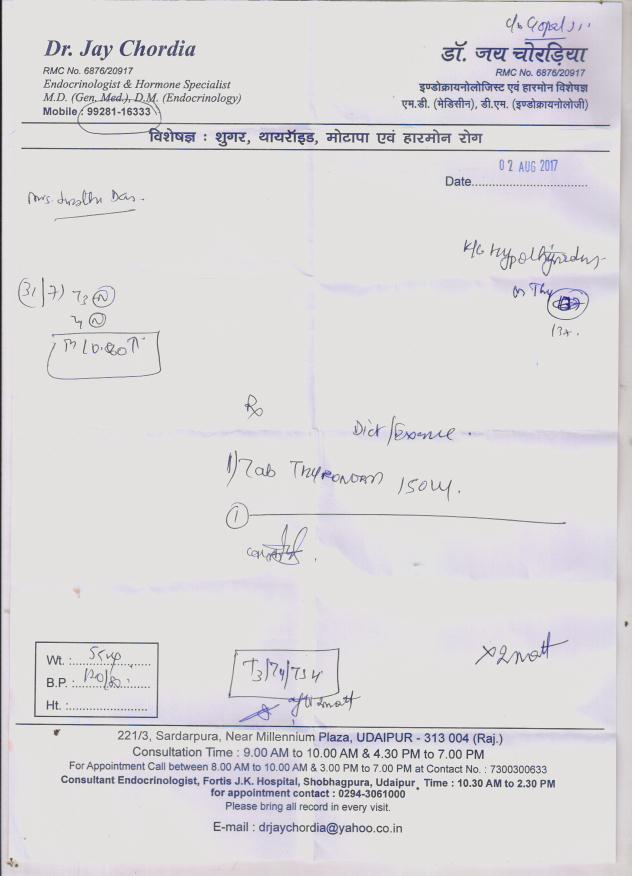 c/o Gopal Ji
Dr. Jay Chordia
RMC No. 6876/20917
Endocrinologist & Hormone Specialist
M.D. (Gen. Med.), D.M. (Endocrinology)
Mobile : 99281-16333
डॉ. जय चोरड़िया
RMC No. 6876/20917
इण्डोक्रायनोलोजिस्ट एवं हारमोन विशेषज्ञ
एम.डी. (मेडिसीन), डी.एम. (इण्डोक्रायनोलॉजी)
विशेषज्ञ : शुगर, थायरॉइड, मोटापा एवं हारमोन रोग
02 AUG 2017
Date
Mrs.
K/c
on Thy
31/7) T3 N
T4 N
Rx
Diet/
1) Tab 150
1
Wt. : 55 kg
B.P. : 120/80
Ht. :
T3/T4/TSH
after 2 month
x 2 month
221/3, Sardarpura, Near Millennium Plaza, UDAIPUR - 313 004 (Raj.)
Consultation Time : 9.00 AM to 10.00 AM & 4.30 PM to 7.00 PM
For Appointment Call between 8.00 AM to 10.00 AM & 3.00 PM to 7.00 PM at Contact No. : 7300300633
Consultant Endocrinologist, Fortis J.K. Hospital, Shobhagpura, Udaipur, Time : 10.30 AM to 2.30 PM
for appointment contact : 0294-3061000
Please bring all record in every visit.
E-mail : drjaychordia@yahoo.co.in